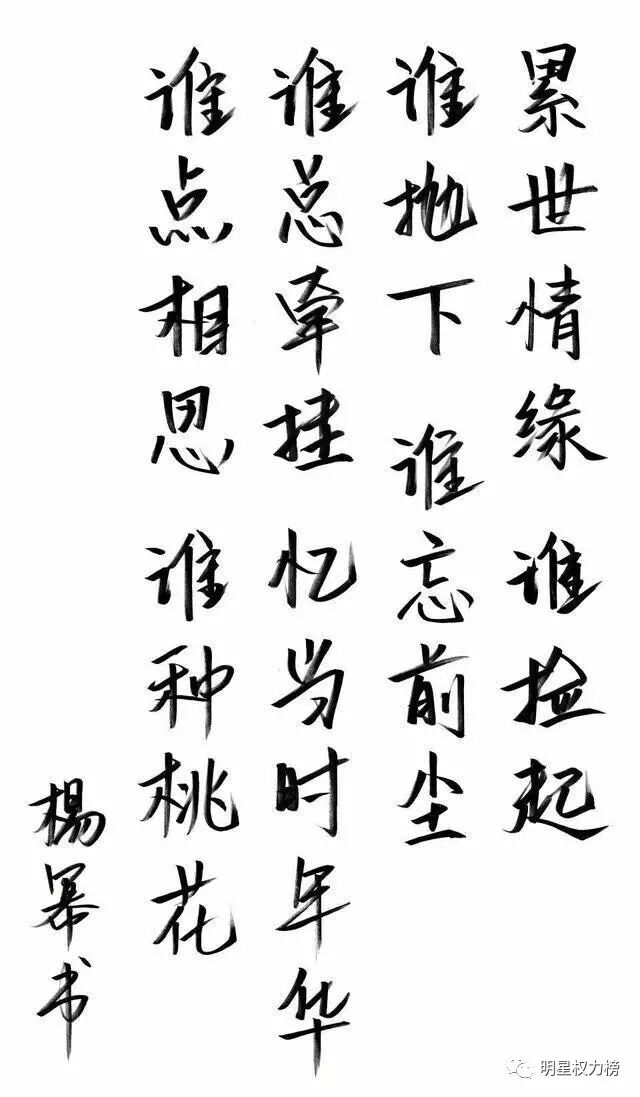 累世情缘 谁捡起
谁抛下 谁忘前尘
谁总牵挂 忆当时年华
谁点相思 谁种桃花
楊幂书
明星权力榜